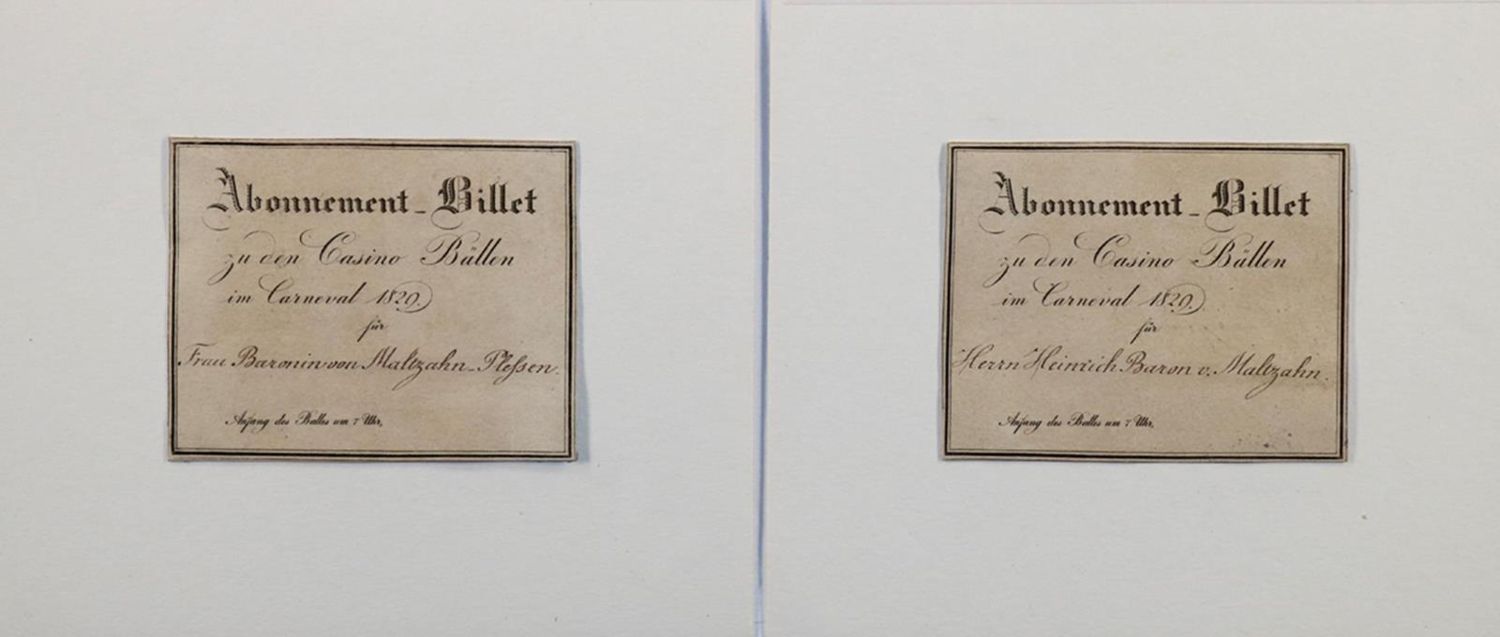 Abonnement-Billet
zu den Casino Bällen
im Carneval 1829.
für
Frau Baronin von Maltzahn-Plessen.
Anfang des Balles um 7 Uhr,
Abonnement-Billet
zu den Casino Bällen
im Carneval 1829.
für
Herrn Heinrich Baron v. Maltzahn.
Anfang des Balles um 7 Uhr,